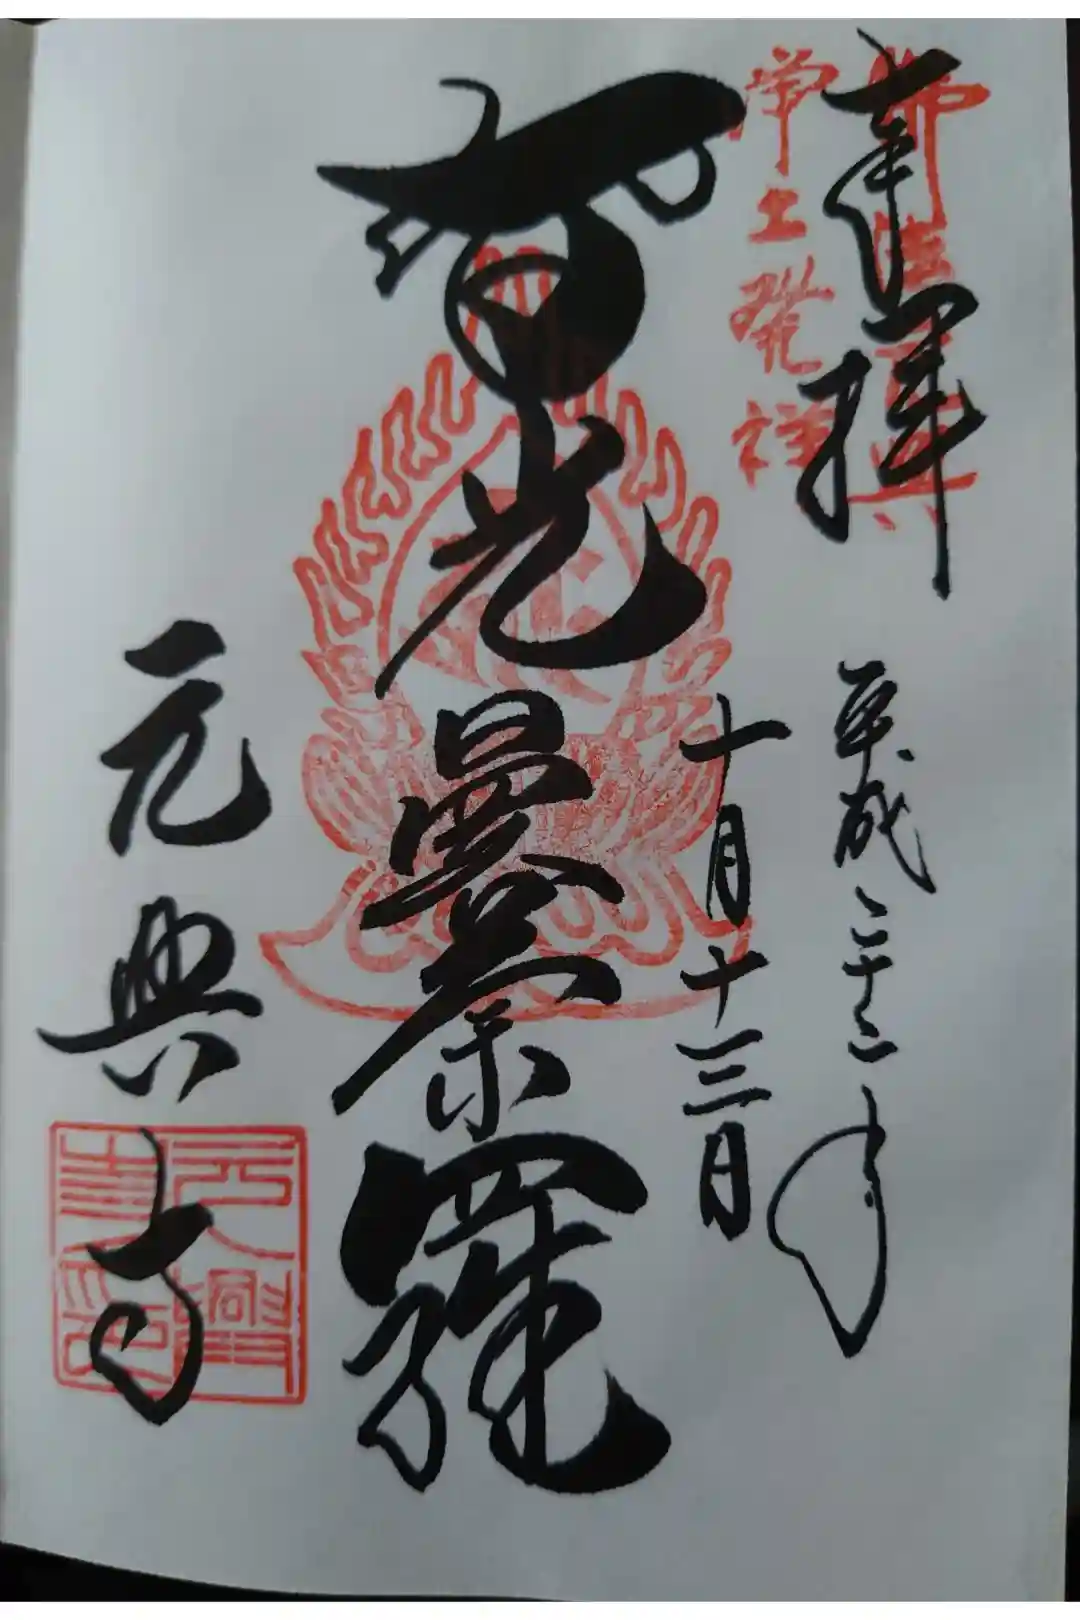 奉拝
平成二十二年
十月十三日
浄土発祥
智光曼荼羅
元興寺
元興寺印